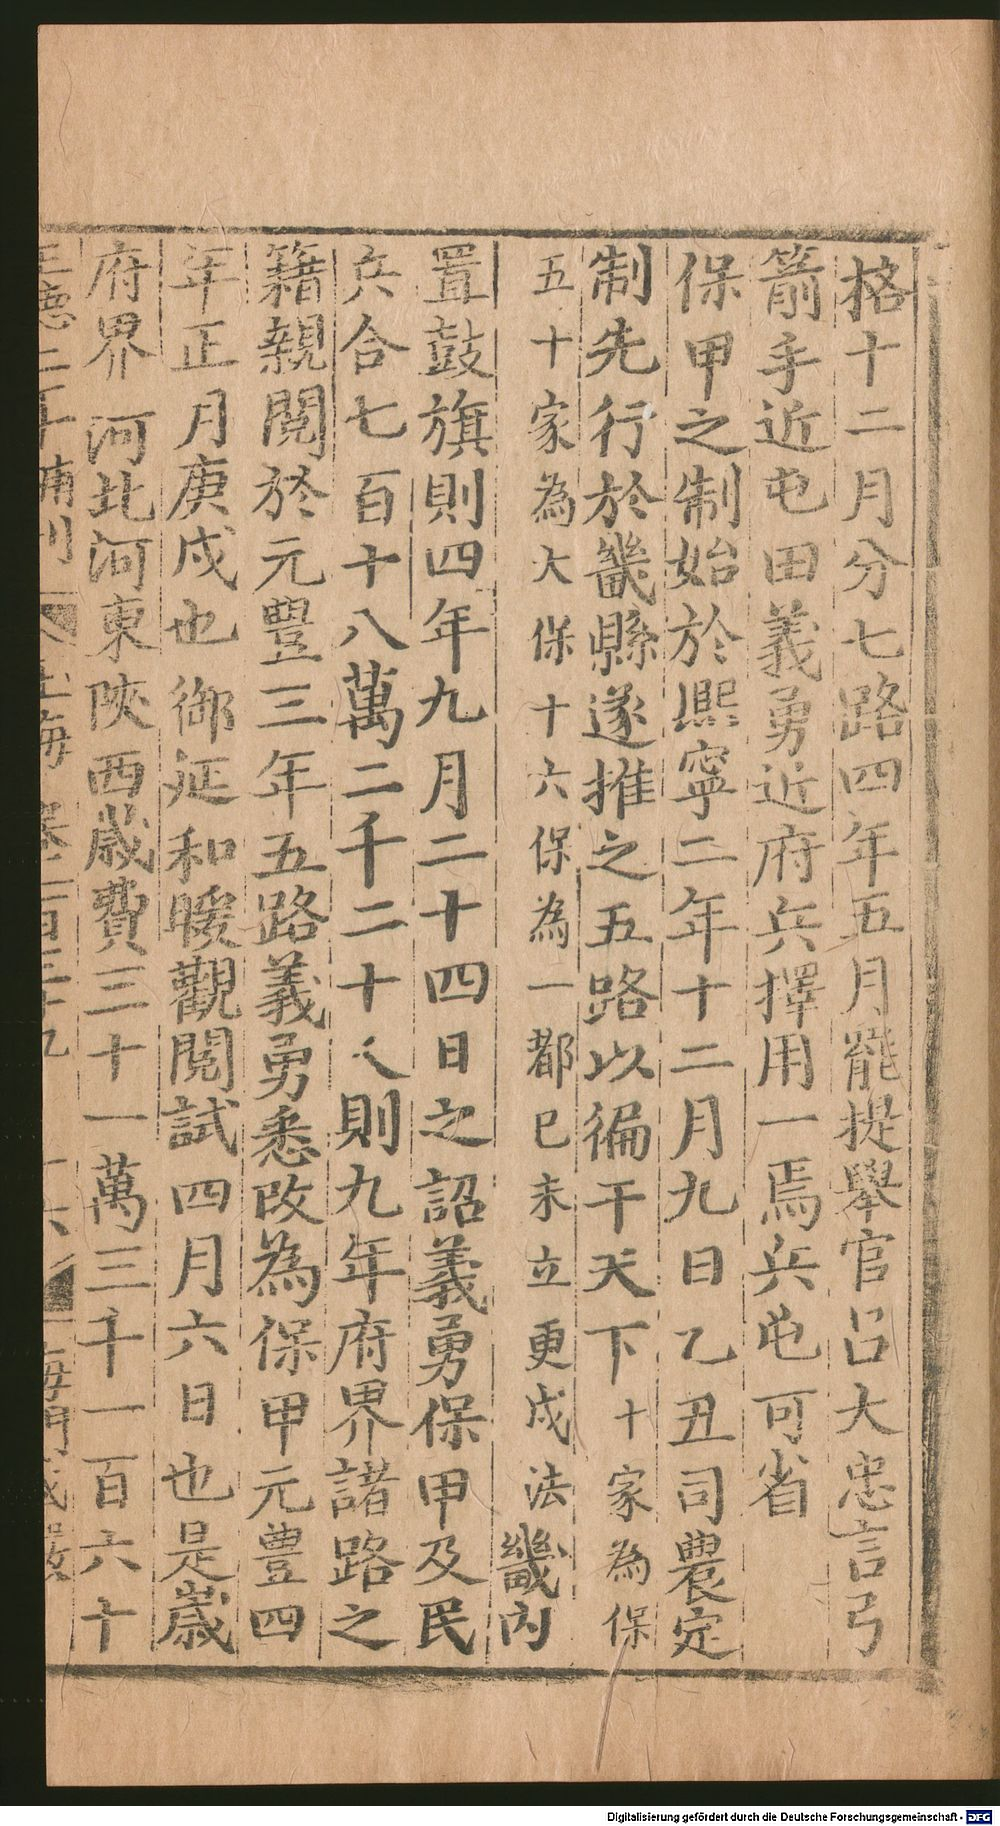 格十二月分七路四年五月罷提舉官呂大忠言弓
箭手近屯田義勇近府兵擇用一焉兵屯可省
保甲之制始於熙寧二年十二月九日乙丑司農定
制先行於畿縣遂推之五路以徧干天下十家為保
五十家為大保十六保為一都巳未立更戍法畿內
置鼓旗則四年九月二十四日之詔義勇保甲及民
兵合七百十八萬二千二十八則九年府界諸路之
籍親閱於元豐三年五路義勇悉改為保甲元豐四
年正月庚戍也御延和暖觀閱試四月六日也是歲
府界 河北河東陝西歲費三十一萬三千一百六十
補刊 玉海 卷一百三十九
Digitalisierung gefördert durch die Deutsche Forschungsgemeinschaft - DFG